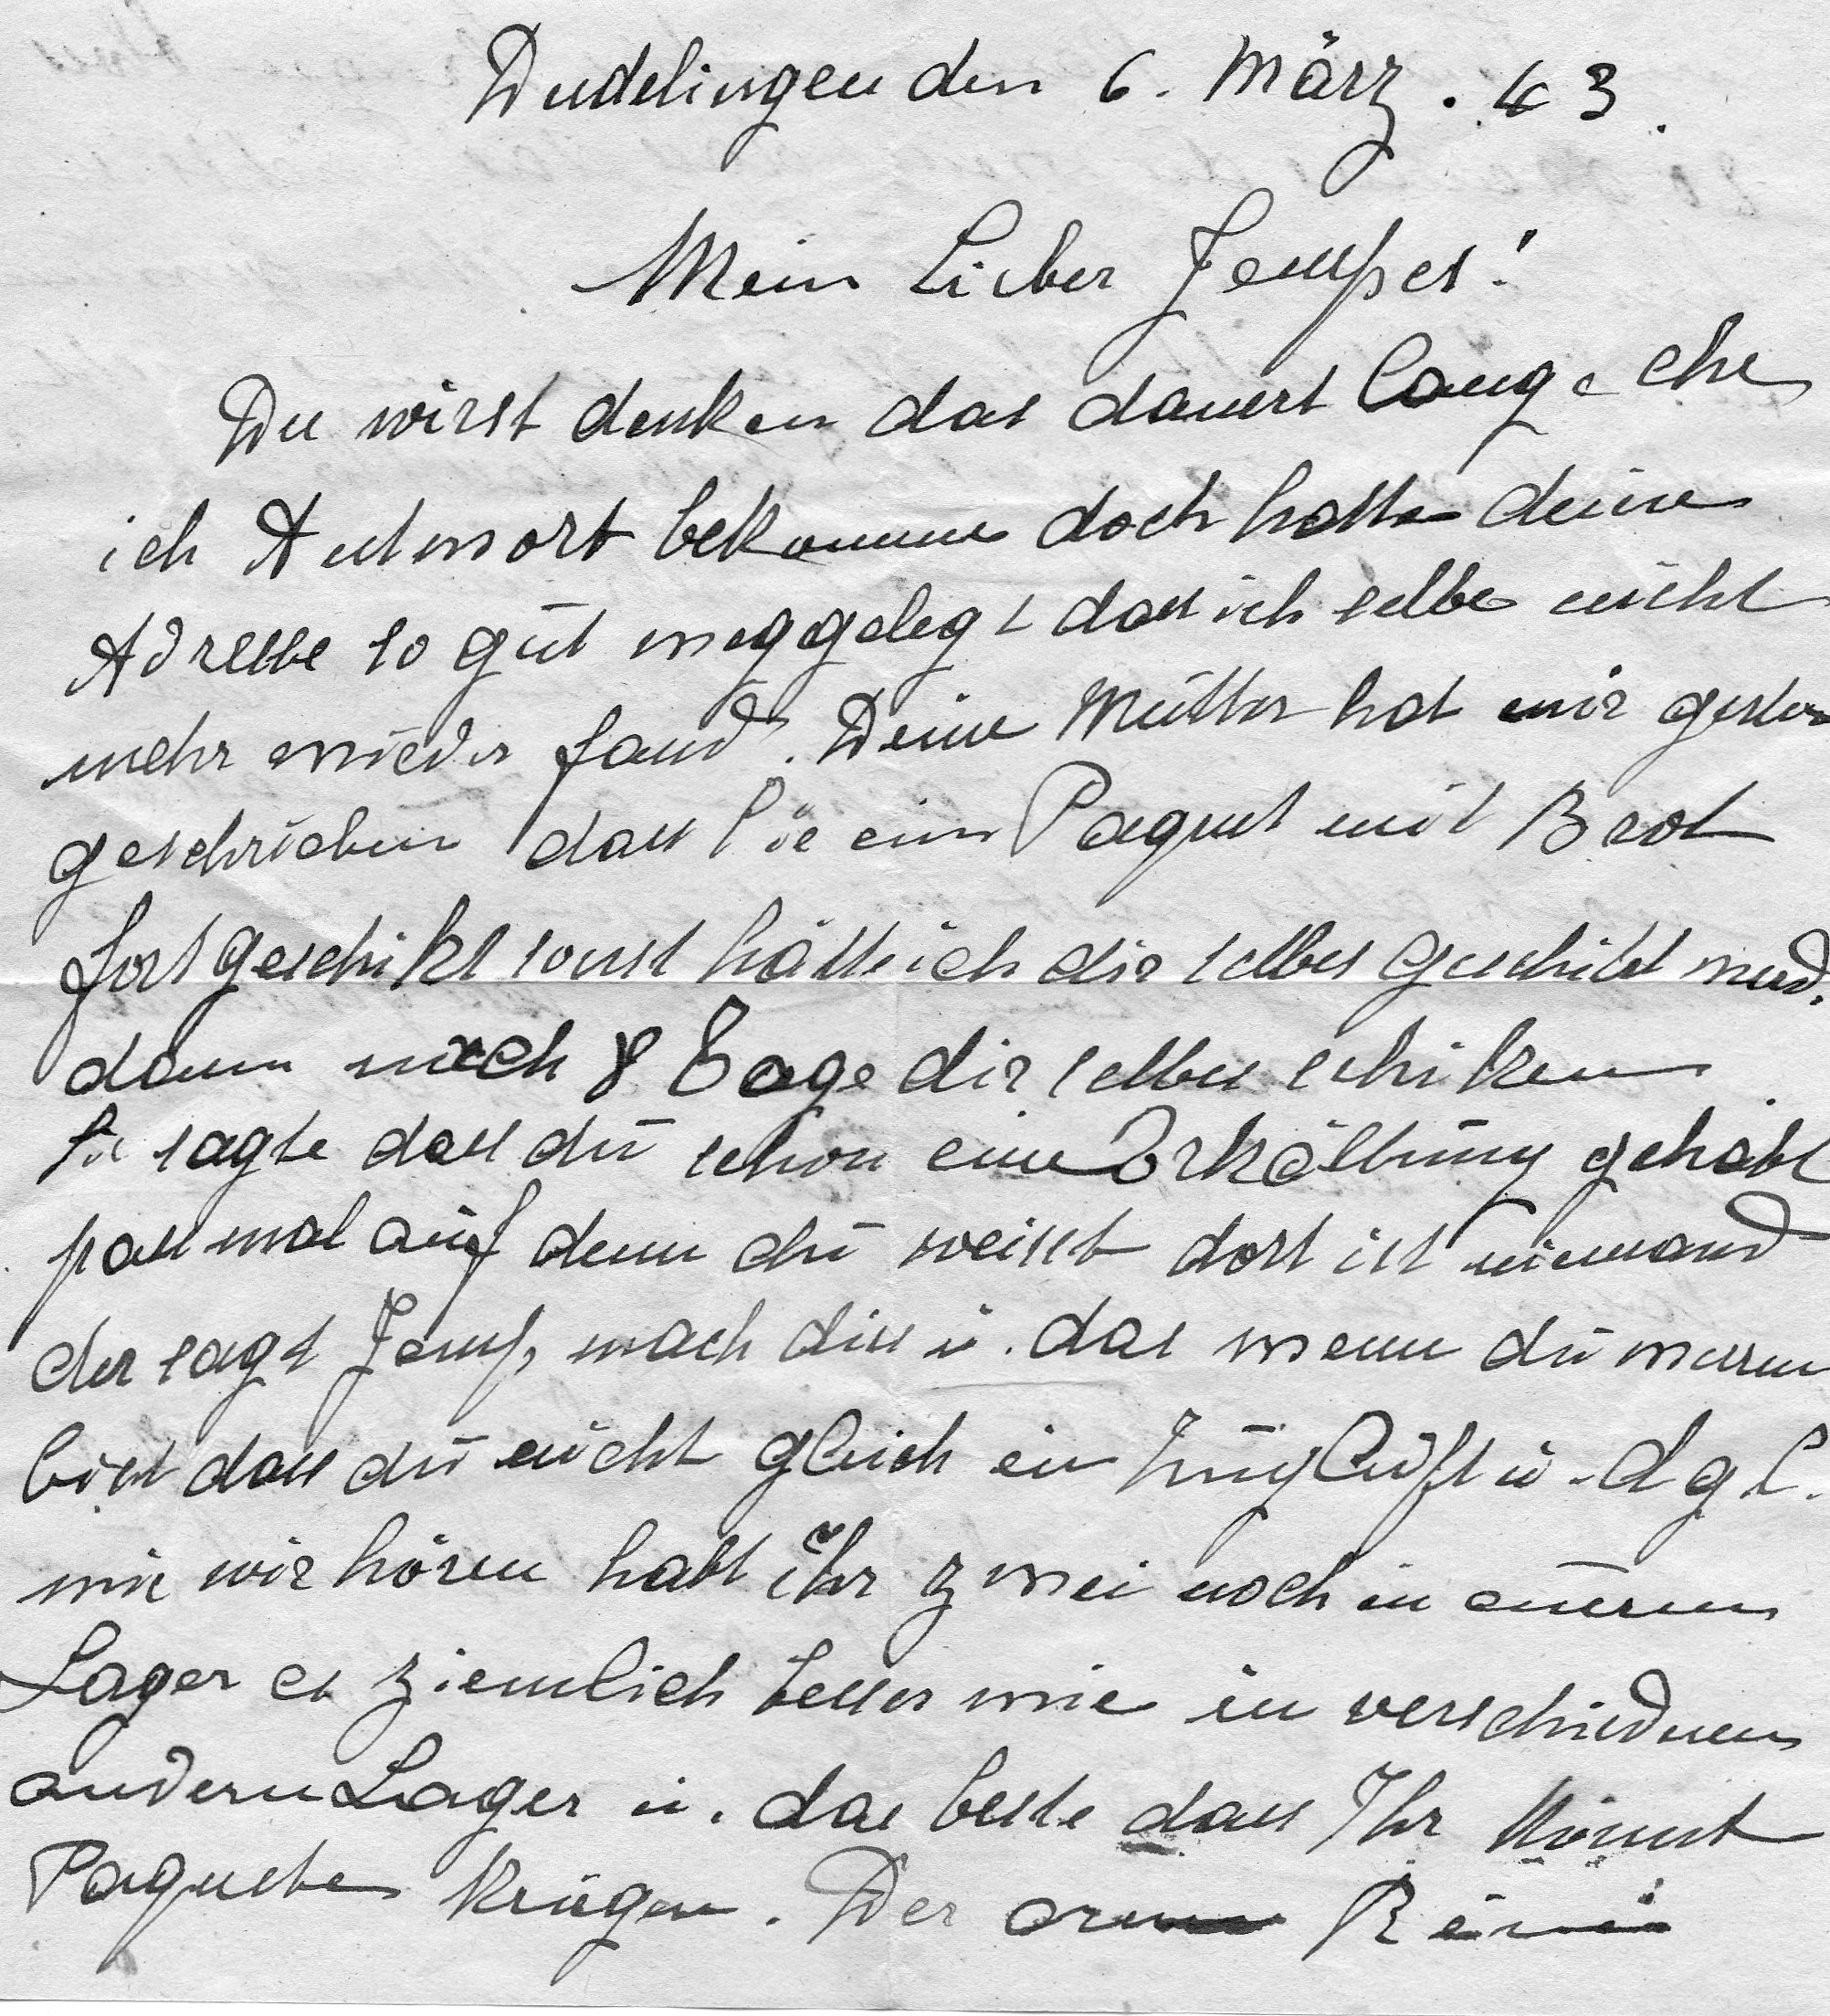 Dudelingen den 6. März. 43.
Mein Lieber Jempes!
Du wirst denken das dauert lange ehe
ich Antwort bekomme doch hatte deine
Adresse so gut weggelegt dass ich selbe nicht
mehr wieder fand. Deine Mutter hat mir gestern
geschrieben dass Sie ein Paquet mit Brot
fortgeschikt sonst hätte ich dir selbes geschikt werd.
dann nach 8 Tage dir selbes schiken
Sie sagte dass du schon eine Erkältung gehabt
pass mal auf denn du weisst dort ist niemand
der sagt Jemp, mach dies u. das wenn du warm
bist dass du nicht gleich in Zugluft u. dgl.
wie wir hören habt ihr zwei noch in eurem
Lager es ziemlich besser wie in verschiednen
andern Lager u. das beste dass Ihr könnt
Paquete kriegen. Der arme Réné